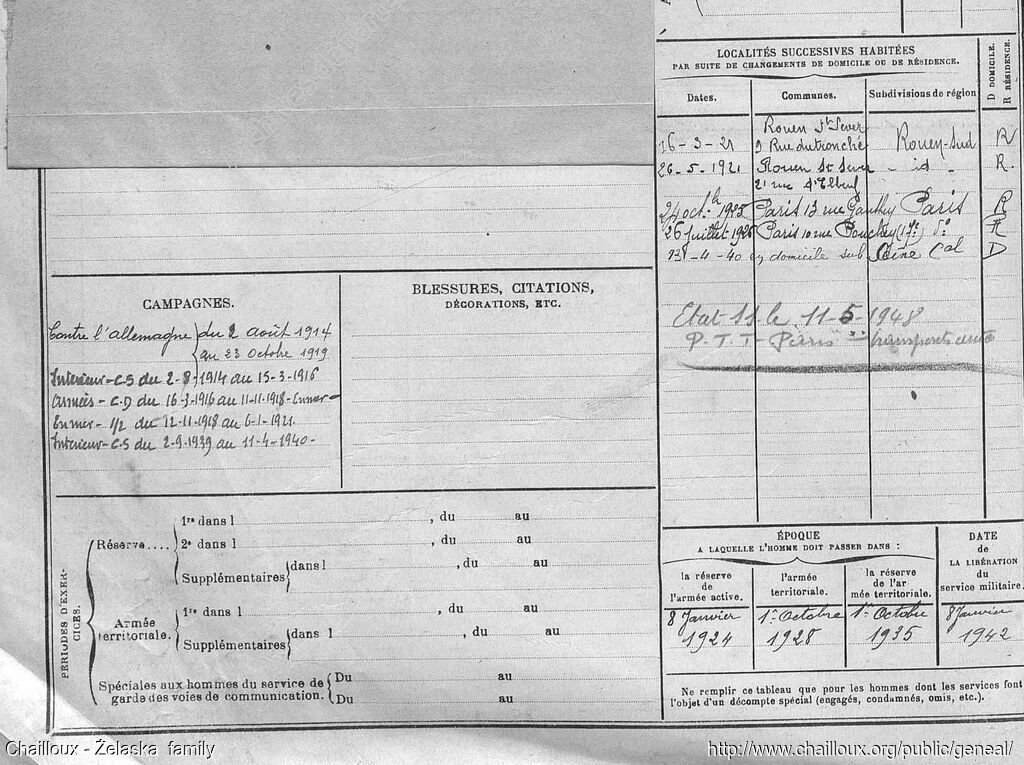 LOCALITÉS SUCCESSIVES HABITÉES
PAR SUITE DE CHANGEMENTS DE DOMICILE OU DE RÉSIDENCE.
D DOMICILE.
R RÉSIDENCE.
Dates.
Communes.
Subdivisions de région
Rouen St Sever
16-3-21
9 Rue du tronche
Rouen-Sud
R
26-5-1921
Rouen St Sever
- id -
R.
21 rue d'Elbeuf
24 oct. 1925
Paris 13 rue Gauthey
Paris
R
26 juillet 1926
Paris 10 rue Pouchet (17e)
do
R
13-4-40
domicile sub
Seine Cal
D
Etat 11 le 11-5-1948
P.T.T- Paris
transports auto
CAMPAGNES.
Contre l'allemagne
du 2 août 1914
au 23 Octobre 1919
Intérieur-CS du 2-8-1914 au 15-3-1916
Armées-C.D du 16-3-1916 au 11-11-1918-Enmer-
Enmer- 1/2 du 12-11-1918 au 6-1-1921.
Intérieur-C.S du 2-9-1939 au 11-4-1940-
BLESSURES, CITATIONS,
DÉCORATIONS, ETC.
PÉRIODES D'EXERCICES.
Réserve....
1re dans l , du au
2e dans l , du au
Supplémentaires
dans l , du au
Armée
territoriale.
1re dans l , du au
Supplémentaires
dans l , du au
Spéciales aux hommes du service de
garde des voies de communication.
Du au
Du au
ÉPOQUE
A LAQUELLE L'HOMME DOIT PASSER DANS :
DATE
de
LA LIBÉRATION
du
service militaire.
la réserve
de
l'armée active.
l'armée
territoriale.
la réserve
de l'ar
mée territoriale.
8 Janvier
1924
1er Octobre
1928
1er Octobre
1935
8 Janvier
1942
Ne remplir ce tableau que pour les hommes dont les services font
l'objet d'un décompte spécial (engagés, condamnés, omis, etc.).
Chailloux - Želaska family
http://www.chailloux.org/public/geneal/